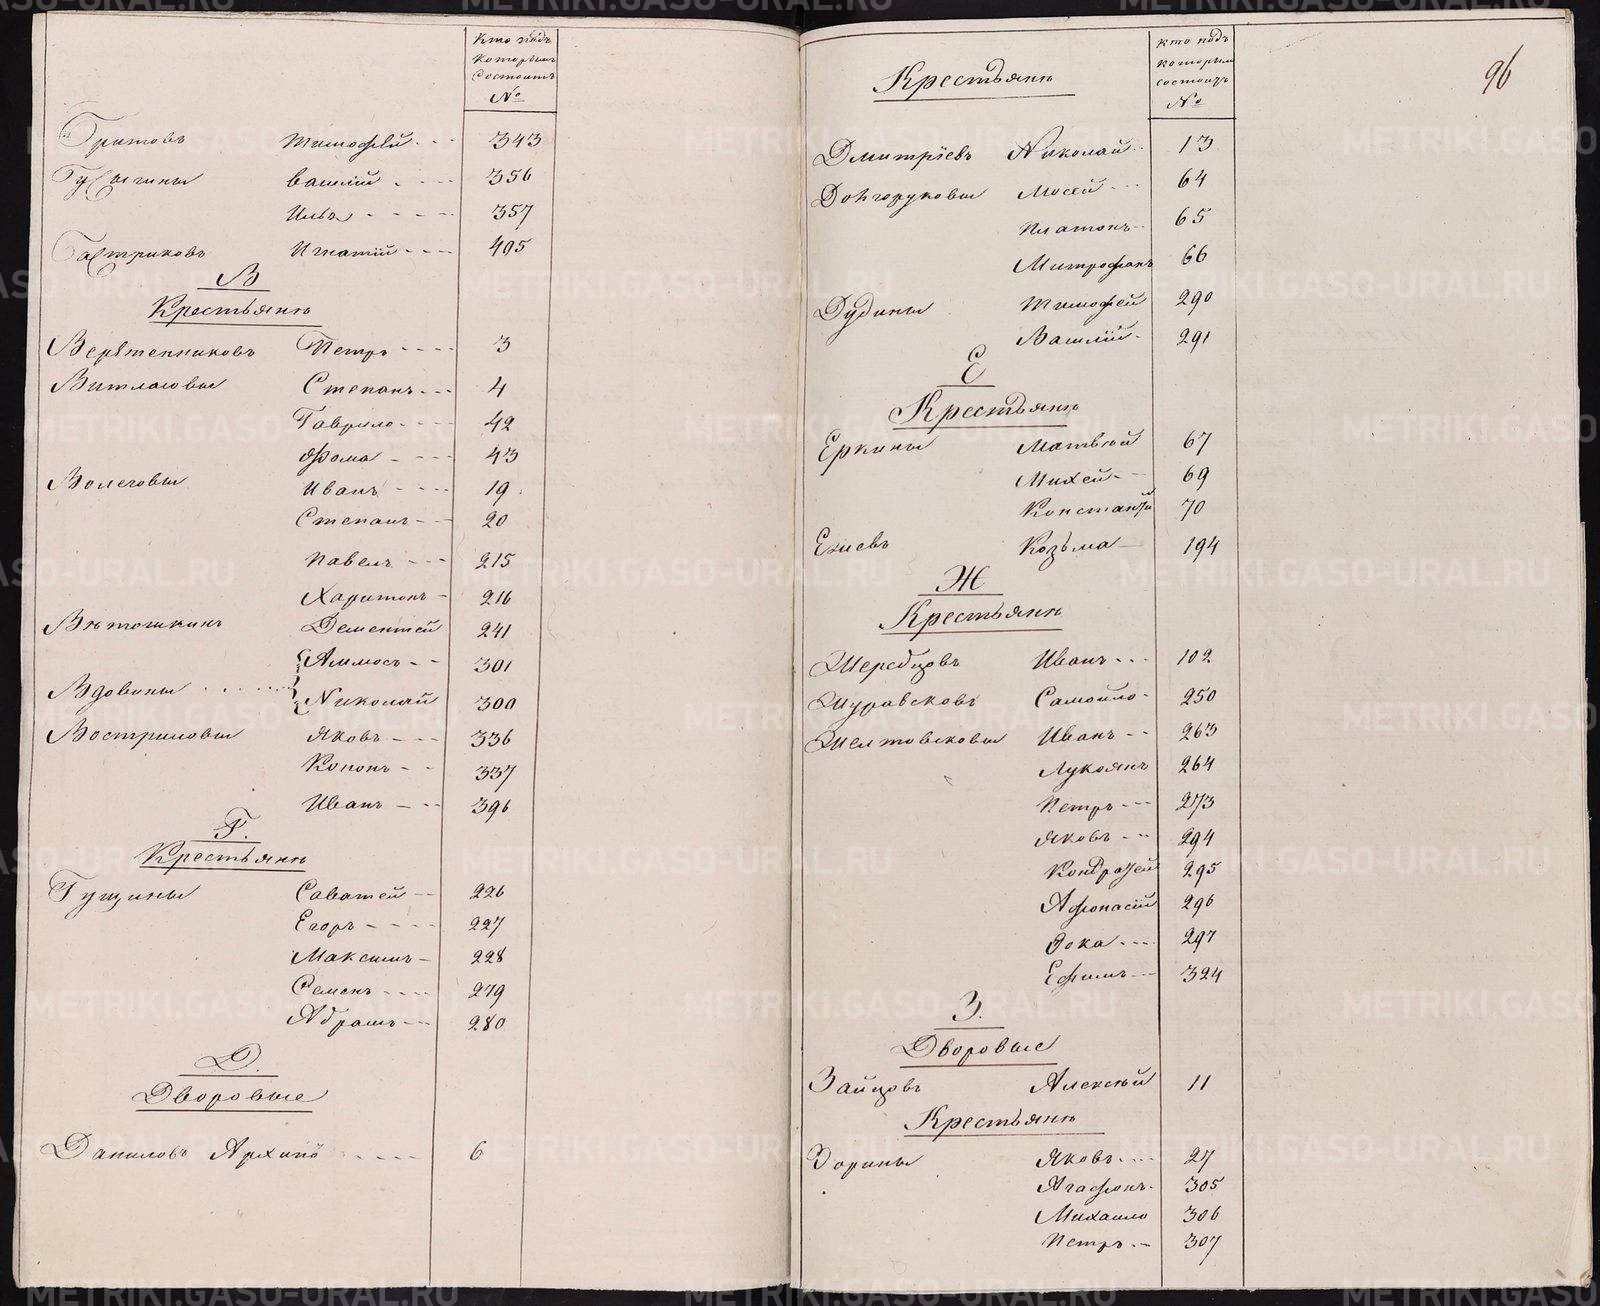 Кто подъ
которымъ
состоитъ
№
Тимофей 343
Василій 356
Илья 357
Игнатій 495
В
Крестьяне
Веретенниковъ Петръ 3
Степанъ 4
Гаврило 42
Фома 43
Волеговы Иванъ 19
Степанъ 20
Павелъ 215
Харитонъ 216
Ветошкинъ Дементей 241
Аммосъ 301
Вдовины Николай 300
Востриловы Яковъ 336
Кононъ 337
Иванъ 396
Г.
Крестьяне
Гущины Саватей 226
Егоръ 227
Максимъ 228
Семенъ 279
Абрамъ 280
Д.
Дворовые
Даниловъ Архипъ 6
96
Крестьяне
Кто подъ
которымъ
состоитъ
№
Дмитріевъ Николай 13
Долгоруковы Мосей 64
Платонъ 65
Митрофанъ 66
Дудины Тимофей 290
Василій 291
Е
Крестьяне
Еркины Матвѣй 67
Михей 69
Константій 70
Козьма 194
Ж
Крестьяне
Жеребцовъ Иванъ 102
Самойло 250
Желтовсковы Иванъ 263
Лукоянъ 264
Петръ 273
Яковъ 294
Кондратей 295
Афонасій 296
Фока 297
Ефимъ 324
З.
Дворовые
Зайцовъ Алексѣй 11
Крестьяне
Зорины Яковъ 27
Агафонъ 305
Михаило 306
Петръ 307
METRIKI.GASO-URAL.RU